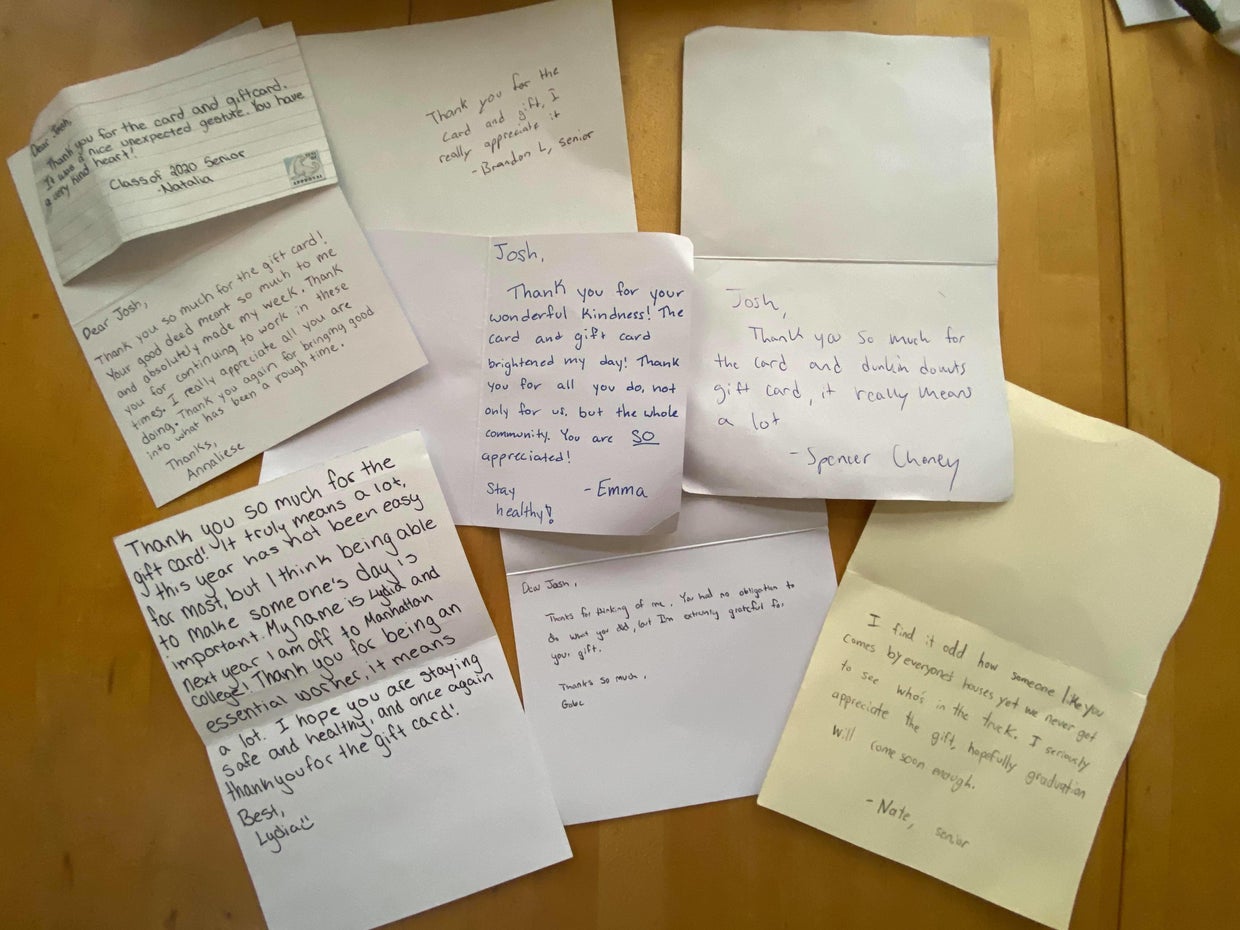 Dear Josh,
Thank you for the card and giftcard.
It was a nice unexpected gesture. You have
a very kind heart!
Class of 2020 Senior
-Natalia
APPROVAL
Thank you for the
card and gift, I
really appreciate it
- Brandon L, senior
Dear Josh,
Thank you so much for the gift card!
Your good deed meant so much to me
and absolutely made my week. Thank
you for continuing to work in these
times. I really appreciate all you are
doing. Thank you again for bringing good
into what has been a rough time.
Thanks,
Annaliese
Josh,
Thank you for your
wonderful kindness! The
card and gift card
brightened my day! Thank
you for all you do, not
only for us, but the whole
community. You are SO
appreciated!
Stay
healthy!
- Emma
Josh,
Thank you so much for
the card and dunkin donuts
gift card, it really means
a lot
- Spencer
Thank you so much for the
gift card! It truly means a lot,
this year has not been easy
for most, but I think being able
to make someone's day is
important. My name is Lydia and
next year I am off to Manhattan
college! Thank you for being an
essential worker, it means
a lot. I hope you are staying
safe and healthy, and once again
thank you for the gift card!
Best,
Lydia
Dear Josh,
Thanks for thinking of me. You had no obligation to
do what you did, but I'm extremly grateful for
your gift.
Thanks so much,
Gabe
I find it odd how someone like you
comes by everyones houses yet we never get
to see who's in the truck. I seriously
appreciate the gift, hopefully graduation
will come soon enough.
- Nate, senior